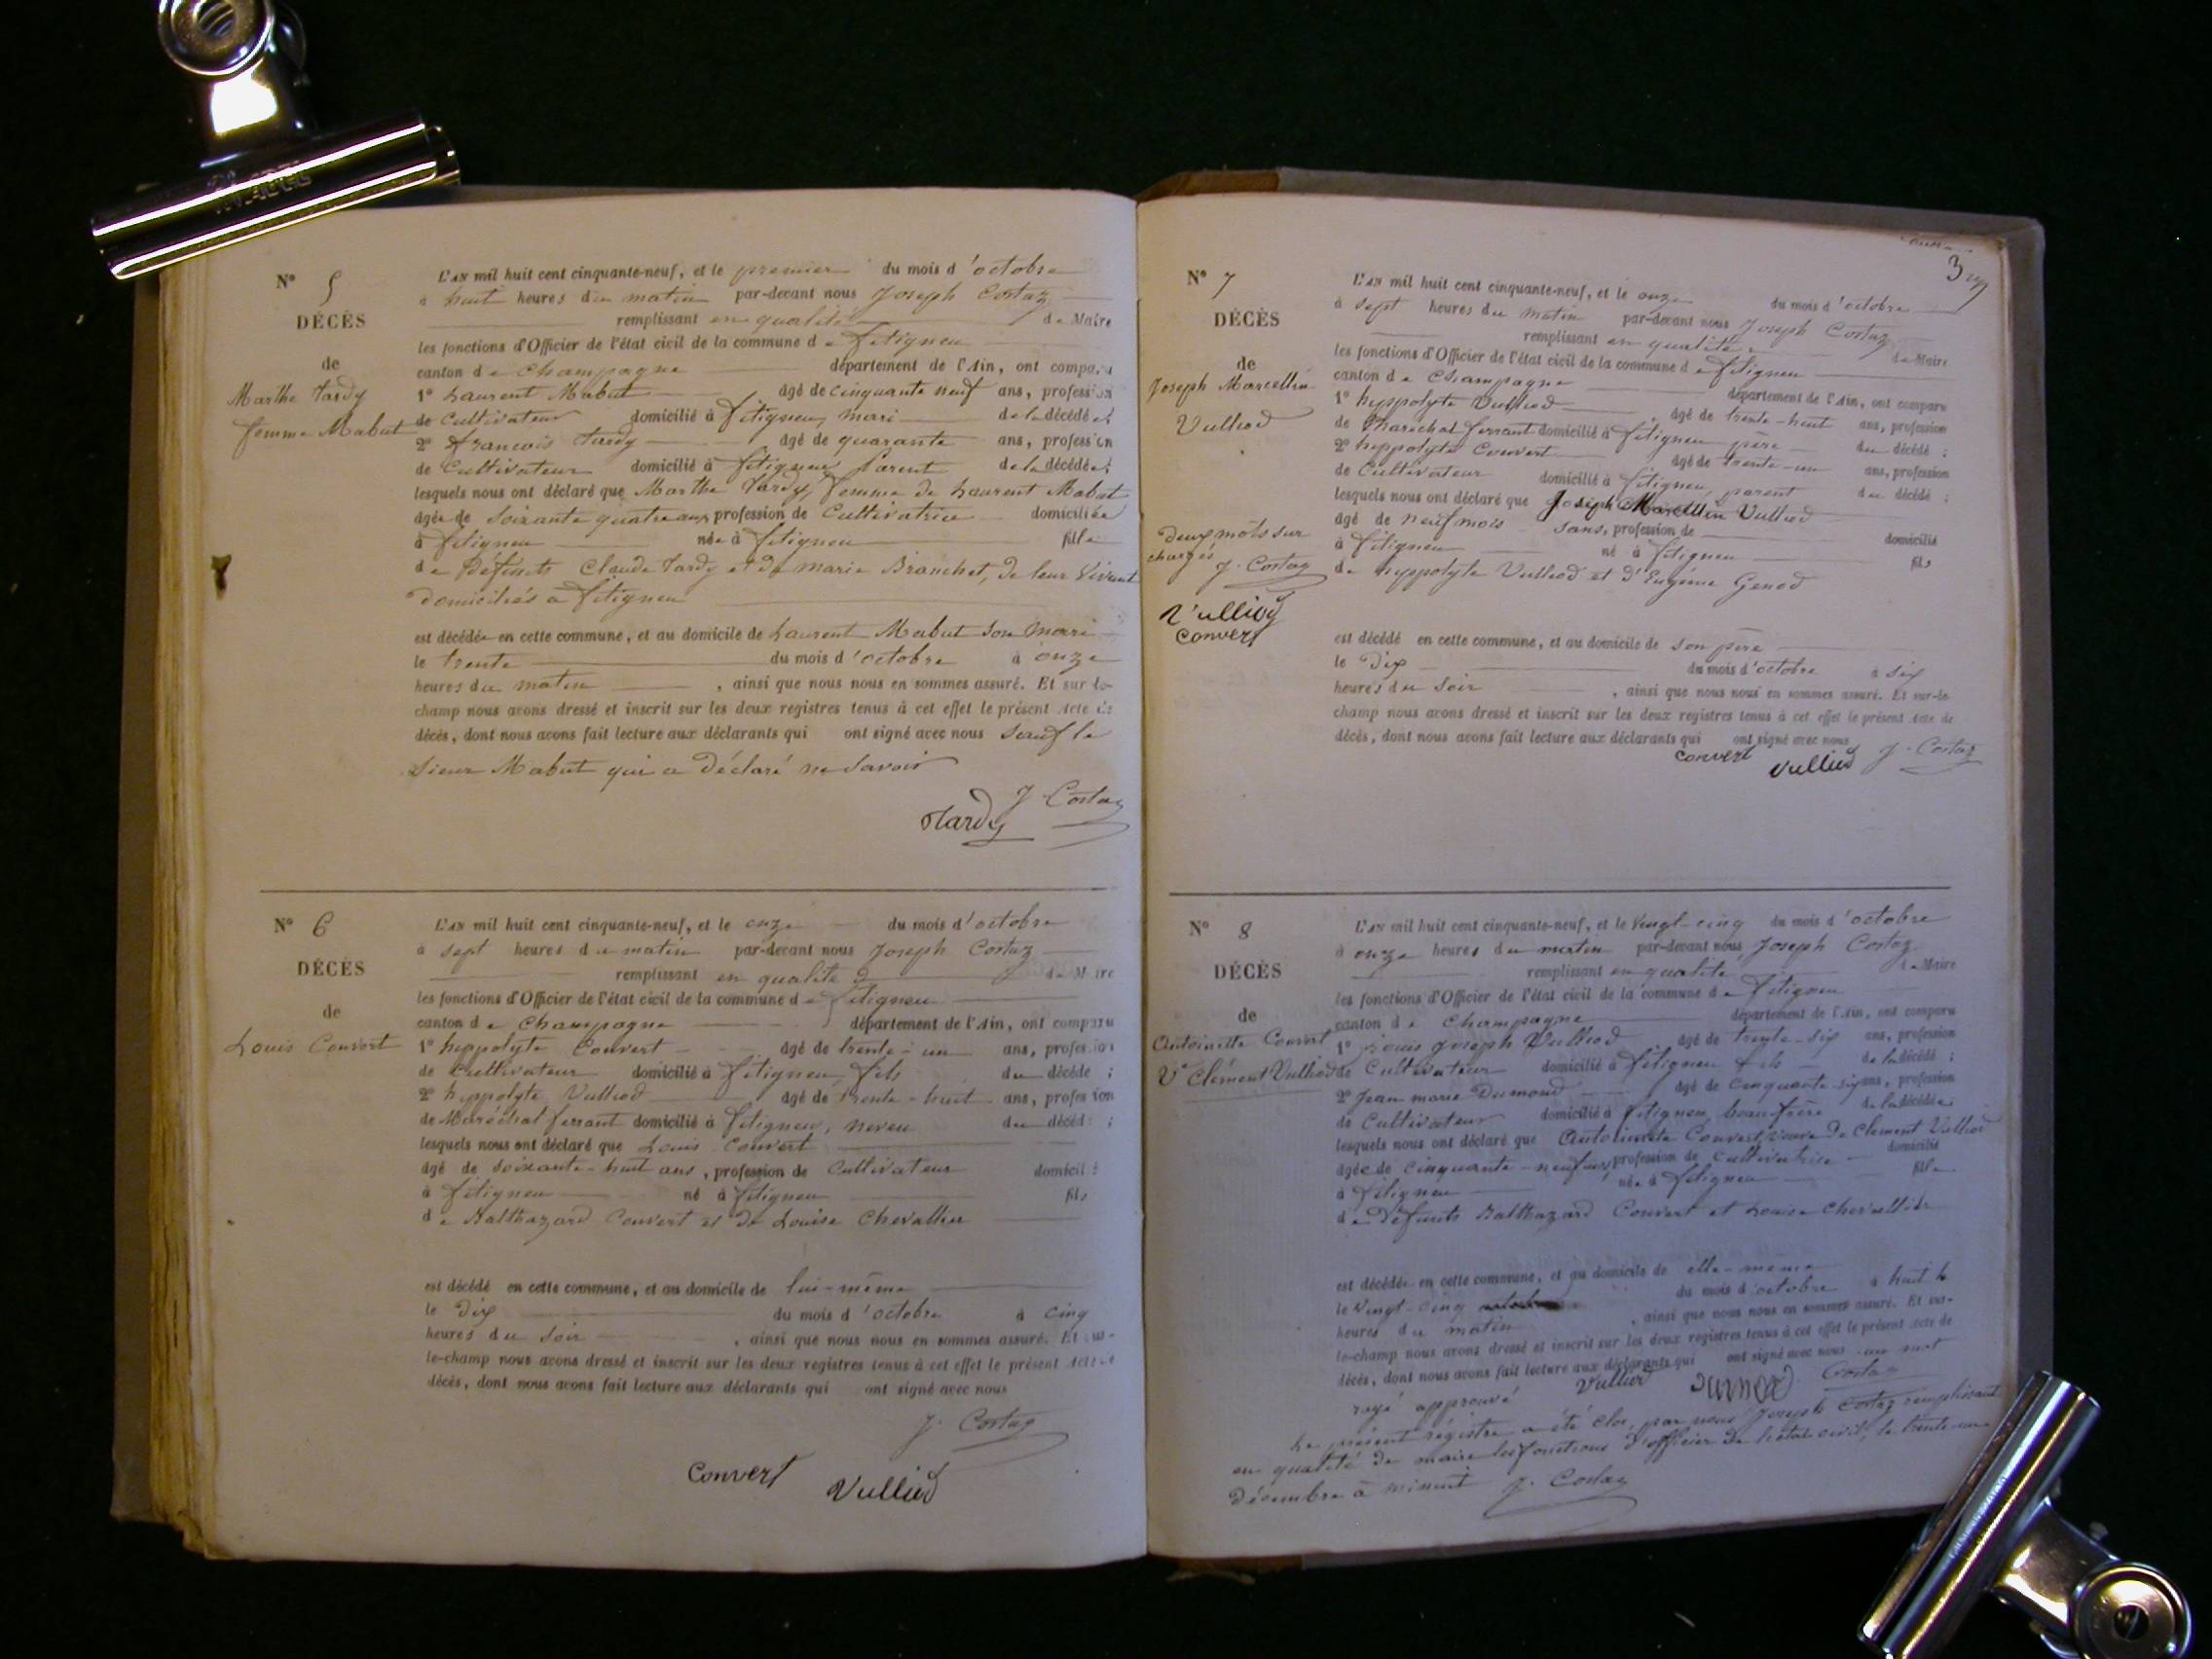 N° 5
DÉCÈS
de
Marthe Tardy
femme Mabut
L'AN mil huit cent cinquante-neuf, et le premier du mois d'octobre
à huit heures du matin par-devant nous Joseph Costaz
remplissant en qualité de Maire
les fonctions d'Officier de l'état civil de la commune de fitigneu
canton de Champagne département de l'Ain, ont comparu
1° Laurent Mabut âgé de cinquante neuf ans, profession
de Cultivateur domicilié à fitigneu, mari de la décédée;
2° francois tardy âgé de quarante ans, profession
de Cultivateur domicilié à fitigneu, parent de la décédée;
lesquels nous ont déclaré que Marthe Tardy, femme de Laurent Mabut
âgée de soixante quatre ans, profession de Cultivatrice domiciliée
à fitigneu née à fitigneu fille
de défunts Claude Tardy et de marie Branchet, de leur vivant
domiciliés à fitigneu
est décédée en cette commune, et au domicile de Laurent Mabut son mari
le trente du mois d'octobre à onze
heures du matin, ainsi que nous nous en sommes assuré. Et sur-le-
champ nous avons dressé et inscrit sur les deux registres tenus à cet effet le présent Acte de
décès, dont nous avons fait lecture aux déclarants qui ont signé avec nous sauf le
sieur Mabut qui a déclaré ne savoir
J. Costaz
Tardy
N° 6
DÉCÈS
de
Louis Convert
L'AN mil huit cent cinquante-neuf, et le onze du mois d'octobre
à sept heures du matin par-devant nous Joseph Costaz
remplissant en qualité d de Maire
les fonctions d'Officier de l'état civil de la commune de fitigneu
canton de Champagne département de l'Ain, ont comparu
1° hippolyte Convert âgé de trente-un ans, profession
de Cultivateur domicilié à fitigneu, fils du décédé;
2° hippolyte Vulliod âgé de trente-huit ans, profession
de Maréchal ferrant domicilié à fitigneu, neveu du décédé;
lesquels nous ont déclaré que Louis Convert
âgé de soixante-huit ans, profession de Cultivateur domicilié
à fitigneu né à fitigneu fils
de Balthazard Convert et de Louise Chevallier
est décédé en cette commune, et au domicile de lui-même
le dix du mois d'octobre à cinq
heures du soir, ainsi que nous nous en sommes assuré. Et sur-
le-champ nous avons dressé et inscrit sur les deux registres tenus à cet effet le présent Acte de
décès, dont nous avons fait lecture aux déclarants qui ont signé avec nous
J. Costaz
Convert
Vulliod
3
N° 7
DÉCÈS
de
Joseph Marcellin
Vulliod
deux mots sur
chargés
J. Costaz
Vulliod
Convert
L'AN mil huit cent cinquante-neuf, et le onze du mois d'octobre
à sept heures du matin par-devant nous Joseph Costaz
remplissant en qualité de Maire
les fonctions d'Officier de l'état civil de la commune de fitigneu
canton de Champagne département de l'Ain, ont comparu
1° hyppolyte Vulliod âgé de trente-huit ans, profession
de Maréchal ferrant domicilié à fitigneu père du décédé;
2° hyppolyte Convert âgé de trente-un ans, profession
de Cultivateur domicilié à fitigneu, parent du décédé;
lesquels nous ont déclaré que Joseph Marcellin Vulliod
âgé de neuf mois sans, profession de domicilié
à fitigneu né à fitigneu fils
de hyppolyte Vulliod et d'Eugénie Genod
est décédé en cette commune, et au domicile de son père
le dix du mois d'octobre à six
heures du soir, ainsi que nous nous en sommes assuré. Et sur-le-
champ nous avons dressé et inscrit sur les deux registres tenus à cet effet le présent Acte de
décès, dont nous avons fait lecture aux déclarants qui ont signé avec nous
Convert Vulliod J. Costaz
N° 8
DÉCÈS
de
Antoinette Convert
Ve Clément Vulliod
L'AN mil huit cent cinquante-neuf, et le vingt-cinq du mois d'octobre
à onze heures du matin par-devant nous, Joseph Costaz
remplissant en qualité de Maire
les fonctions d'Officier de l'état civil de la commune de fitigneu
canton de Champagne département de l'Ain, ont comparu
1° Louis Joseph Vulliod âgé de trente-six ans, profession
de Cultivateur domicilié à fitigneu fils de la décédée;
2° Jean marie Dumond âgé de cinquante-six ans, profession
de Cultivateur domicilié à fitigneu, beau frère de la décédée
lesquels nous ont déclaré que Antoinette Convert, veuve de Clément Vulliod
âgée de cinquante-neuf ans, profession de cultivatrice domicilié
à fitigneu née à fitigneu fille
de défunts Balthazard Convert et Louise Chevallier
est décédée en cette commune, et au domicile de elle-même
le vingt-cinq du mois d'octobre à huit h
heures du matin, ainsi que nous nous en sommes assuré. Et sur-
le-champ nous avons dressé et inscrit sur les deux registres tenus à cet effet le présent Acte de
décès, dont nous avons fait lecture aux déclarants qui ont signé avec nous un mot
rayé approuvé Vulliod Dumond Costaz
Le présent régistre a été clos, par nous Joseph Costaz remplissant
en qualité de maire les fonctions d'officier de l'état civil, le trente-un
décembre à minuit J. Costaz